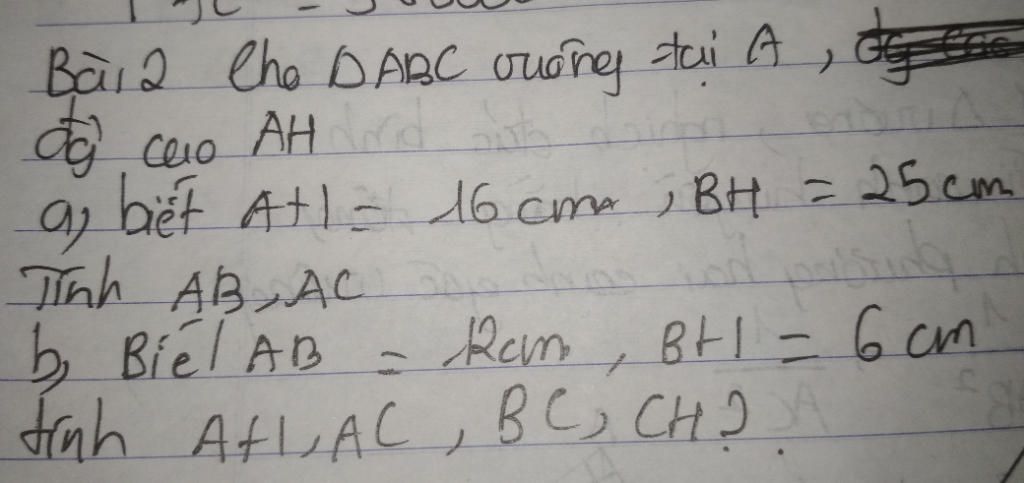 Bài 2 Cho ΔABC vuông tại A,
đg cao AH
a, biết AH = 16 cm, BH = 25 cm
Tính AB, AC
b, Biết AB = 12cm, BH = 6 cm
tính AH, AC, BC, CH?.